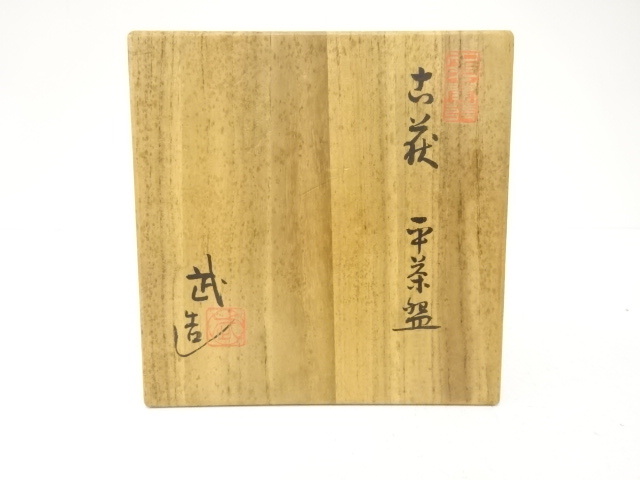 古萩 平茶盌
武造